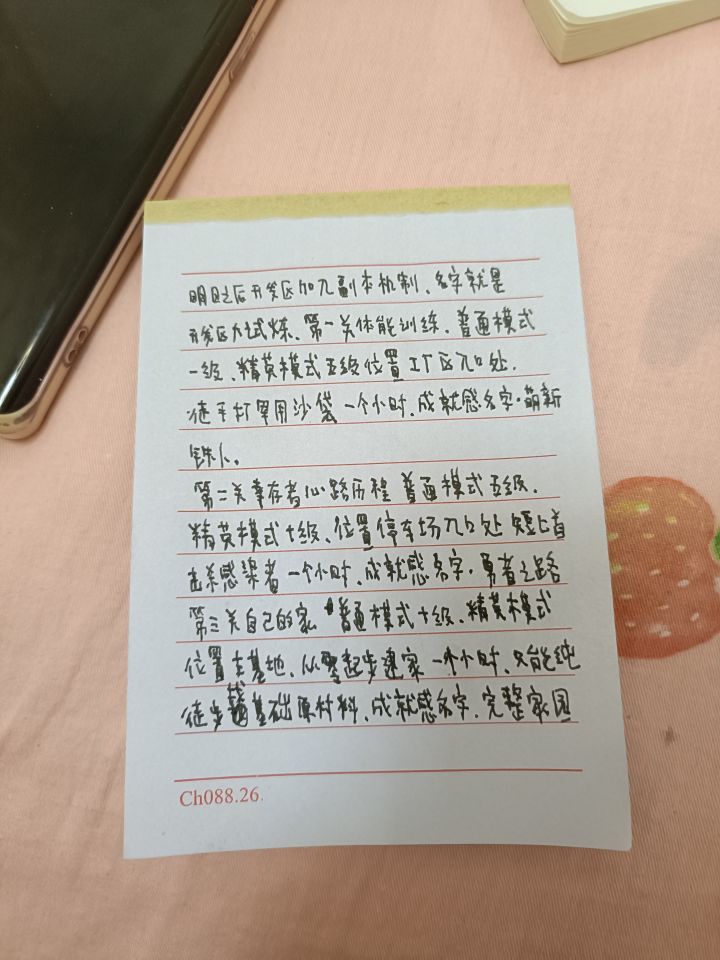 明日之后开发区加入副本机制、名字就是
开发区大试炼、第一关体能训练、普通模式
一级、精英模式五级位置工厂区入口处.
徒手打军用沙袋一个小时.成就感名字·萌新
铁人、
第二关幸存者心路历程 普通模式五级.
精英模式十级、位置停车场入口处 短匕首
击杀感染者一个小时、成就感名字·勇者之路
第三关自己的家 普通模式十级.精英模式
位置主基地、从零起步建家一个小时、只能纯
徒步 基础原材料、成就感名字.完整家园
Ch088.26